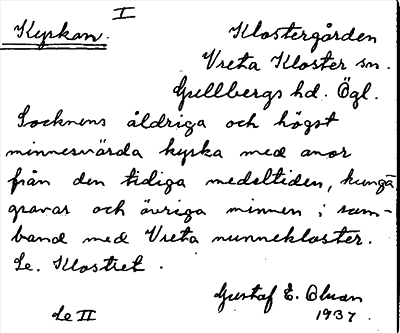 I
Kyrkan.
Klostergården
Vreta Kloster sn.
Gullbergs hd. Ögl.
Socknens åldriga och högst
minnesvärda kyrka med anor
från den tidiga medeltiden, kunga
gravar och övriga minnen i sam-
band med Vreta nunnekloster.
Se. Klostret.
Gustaf E. Olsson
1937.
Se II